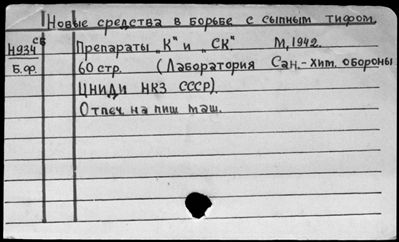 Новые средства в борьбе с сыпным тифом.
Н934 СБ Препараты „К" и „СК" М, 1942.
Б.Ф. 60 стр. (Лаборатория Сан.-хим. обороны
ЦНИДИ НКЗ СССР).
Отпеч. на пиш. маш.